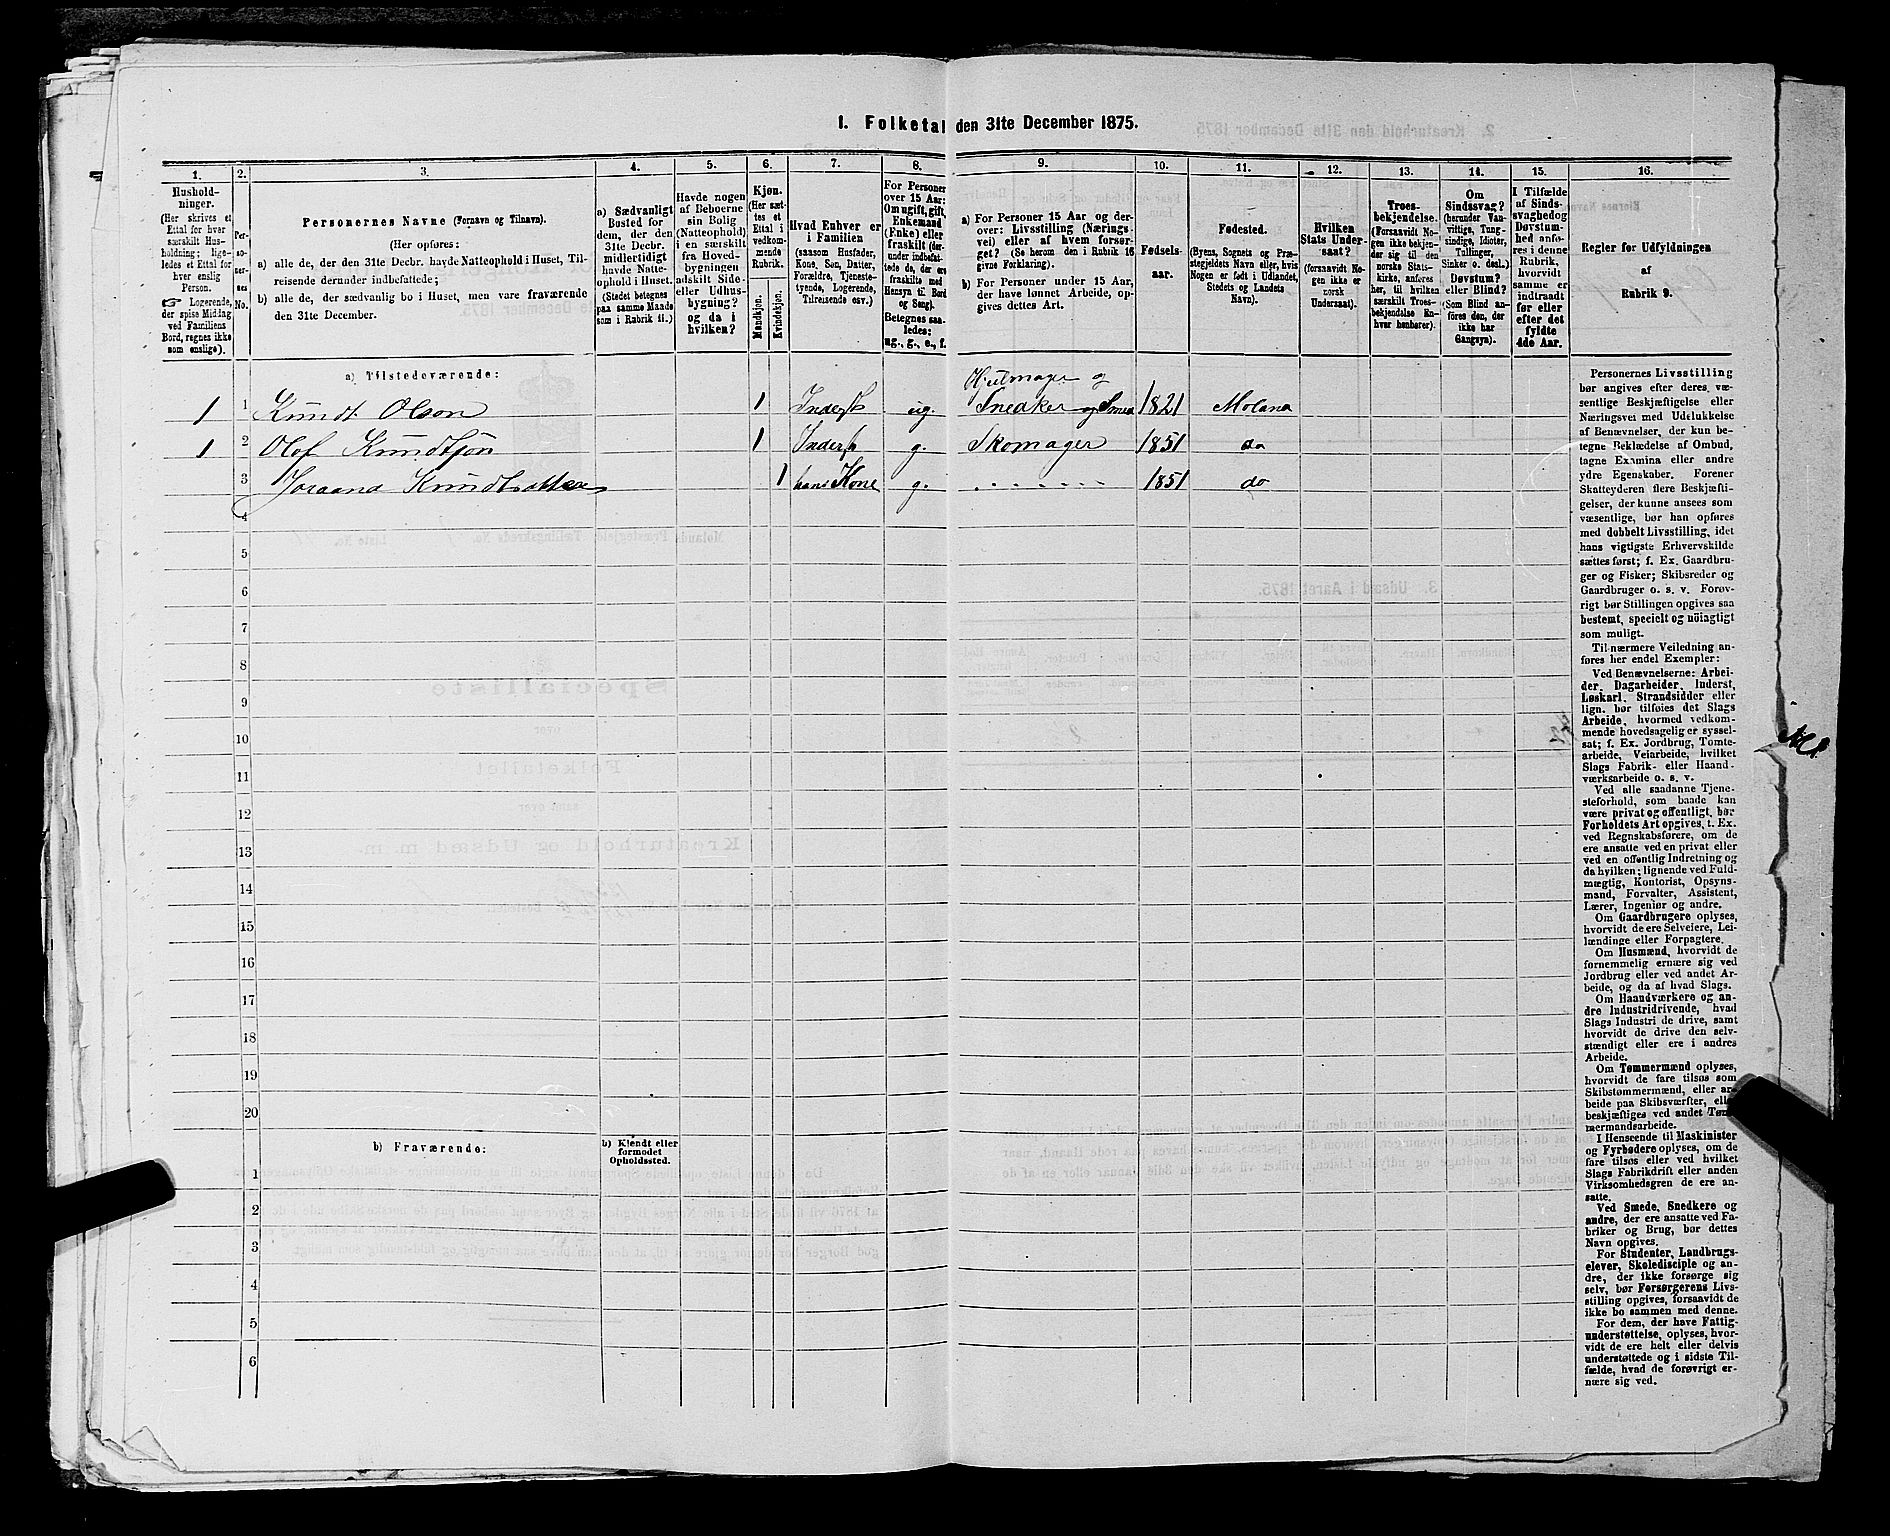 1. Folketal den 31te December 1875.
1. 2. 3. 4. 5. 6. 7. 8. 9. 10. 11. 12. 13. 14. 15. 16.
Hushold-
ninger.
(Her skrives et
Ettal for hver
særskilt Hus-
holdning; lige-
ledes et Ettal for
hver enslig
Person.
☞ Logerende,
der spise Middag
ved Familiens
Bord, regnes ikke
som enslige).
Per-
soner-
nes
No.
Personernes Navne (Fornavn og Tilnavn).
(Her opføres:
a) alle de, der den 31te Decbr. havde Natteophold i Huset, Til-
reisende derunder indbefattede;
b) alle de, der sædvanlig bo i Huset, men vare fraværende
den 31te December.
a) Sædvanligt
Bosted for
dem, der den
31te Decbr.
midlertidigt
havde Natte-
ophold i Huset.
(Stedet betegnes
paa samme Maade
som i Rubrik 11.)
Havde nogen
af Beboerne
sin Bolig
(Natteophold)
i en særskilt
fra Hoved-
bygningen
adskilt Side-
eller Udhus-
bygning?
og da i
hvilken?
Kjøn.
(Her sæt-
tes et
Ettal i
vedkom-
mende
Rubrik.
Mandkjøn.
Kvindekjøn.
Hvad Enhver er
i Familien
(saasom Husfader,
Kone, Søn, Datter,
Forældre, Tjeneste-
tyende, Logerende,
Tilreisende osv.)
For Personer
over 15 Aar:
Om ugift, gift,
Enkemand
(Enke) eller
fraskilt (der-
under indbefat-
tede da, der ere
fraskilte med
Hensyn til Bord
og Seng).
Betegnes saa-
ledes:
ug., g., e., f.
a) For Personer 15 Aar og der-
over: Livsstilling (Nærings-
vei) eller af hvem forsør-
get? (Se herom den i Rubrik 16
givne Forklaring).
b) For Personer under 15 Aar,
der have lønnet Arbeide, op-
gives dettes Art.
Fødsels-
aar.
Fødested.
(Byens, Sognets og Præ-
stegjeldets Navn eller, hvis
Nogen er født i Udlandet,
Stedets og Landets
Navn).
Hvilken
Stats Under-
saat?
(forsaavidt No-
gen ikke er
norsk
Undersaat).
Troes-
bekjendelse.
(Forsaavidt No-
gen ikke bekjen-
der sig til den
norske Stats-
kirke, anføres
her, til hvilken
særskilt Troes-
bekjendelse En-
hver henhører).
Om
Sindssvag?
(herunder Van-
vittige, Tung-
sindige, Idioter,
Tullinger,
Sinker o. desl.)
Døvstum?
eller Blind?
(Som Blind an-
føres den, der
ikke har
Gangsyn).
I Tilfælde
af Sinds-
svaghed og
Døvstum-
hed anfø-
res i denne
Rubrik,
hvorvidt
samme er
indtraadt
før eller
efter det
fyldte
4de Aar.
Regler for Udfyldningen
af
Rubrik 9.
a) Tilstedeværende:
Hjulmager og
1 1 Knudt Olson 1 Inderst ug. Snedker og Smed 1821 Moland
1 2 Olof Knudtsøn 1 Inderst g. Skomager 1851 do
3 Joraand Knudtsdtter 1 hans Kone g. 1851 do
4
5
6
7
8
9
10
11
12
13
14
15
16
17
18
19
20
b) Fraværende:
b) Kjendt eller
formodet
Opholdssted.
1
2
3
4
5
6
Personernes Livsstilling
bør angives efter deres væ-
sentlige Beskjæftigelse eller
Næringsvei med Udelukkelse
af Benævnelser, der kun be-
tegne Beklædelse af Ombud,
tagne Examina eller andre
ydre Egenskaber. Forener
Skatteyderen flere Beskjæfti-
gelser, der kunne ansees som
væsentlige, bør han opføres
med dobbelt Livsstilling, idet
hans vigtigste Erhvervskilde
sættes først; f. Ex. Gaardbru-
ger og Fisker; Skibsreder og
Gaardbruger o. s. v. Forøv-
rigt bør Stillingen opgives saa
bestemt, specielt og nöiagtigt
som muligt.
Til nærmere Veiledning an-
føres her endel Exempler:
Ved Benævnelserne: Arbei-
der, Dagarbeider, Inderst,
Løskarl, Strandsidder eller
lign. bør tilføies det Slags
Arbeide, hvormed vedkom-
mende hovedsagelig er syssel-
sat; f. Ex. Jordbrug, Tomte-
arbeide, Veiarbeide, hvilket
Slags Fabrik- eller Haand-
værksarbeide o. s. v.
Ved alle saadanne Tjene-
steforhold, som baade kan
være privat og offentligt, bør
Forholdets Art opgives, t. Ex.
ved Regnskabsførere, om de
ere ansatte ved en privat eller
ved en offentlig Indretning og
da hvilken; lignende ved Fuld-
mægtig, Kontorist, Opsyns-
mand, Forvalter, Assistent,
Lærer, Ingeniør og andre.
Om Gaardbrugere oplyses,
hvorvidt de ere Selveiere, Lei-
lændinge eller Forpagtere.
Om Husmænd, hvorvidt de
fornemmelig ernære sig ved
Jordbrug eller ved andet Ar-
beide, og da af hvad Slags.
Om Haandværkere og an-
dre Industridrivende, hvad
Slags Industri de drive, samt
hvorvidt de drive den selv-
stændigt eller ere i andres
Arbeide.
Om Tømmermænd oplyses,
hvorvidt de fare tilsøs som
Skibstømmermænd, eller ar-
beide paa Skibsværfter, eller
beskjæftiges ved andet Tøm-
mermandsarbeide.
I Henseende til Maskinister
og Fyrbødere oplyses, om de
fare tilsøs eller ved hvilket
Slags Fabrikdrift eller anden
Virksomhedsgren de ere an-
satte.
Ved Smede, Snedkere og
andre, der ere ansatte ved Fa-
briker og Brug, bør dettes
Navn opgives.
For Studenter, Landbrugs-
elever, Skoledisciple og an-
dre, der ikke forsørge sig
selv, bør Forsørgerens Livs-
stilling opgives, forsaavidt de
ikke bo sammen med denne.
For dem, der have Fattig-
understøttelse, oplyses, hvor-
vidt de ere helt eller delvis
understøttede og i sidste Til-
fælde, hvad de forøvrigt er-
nære sig ved.